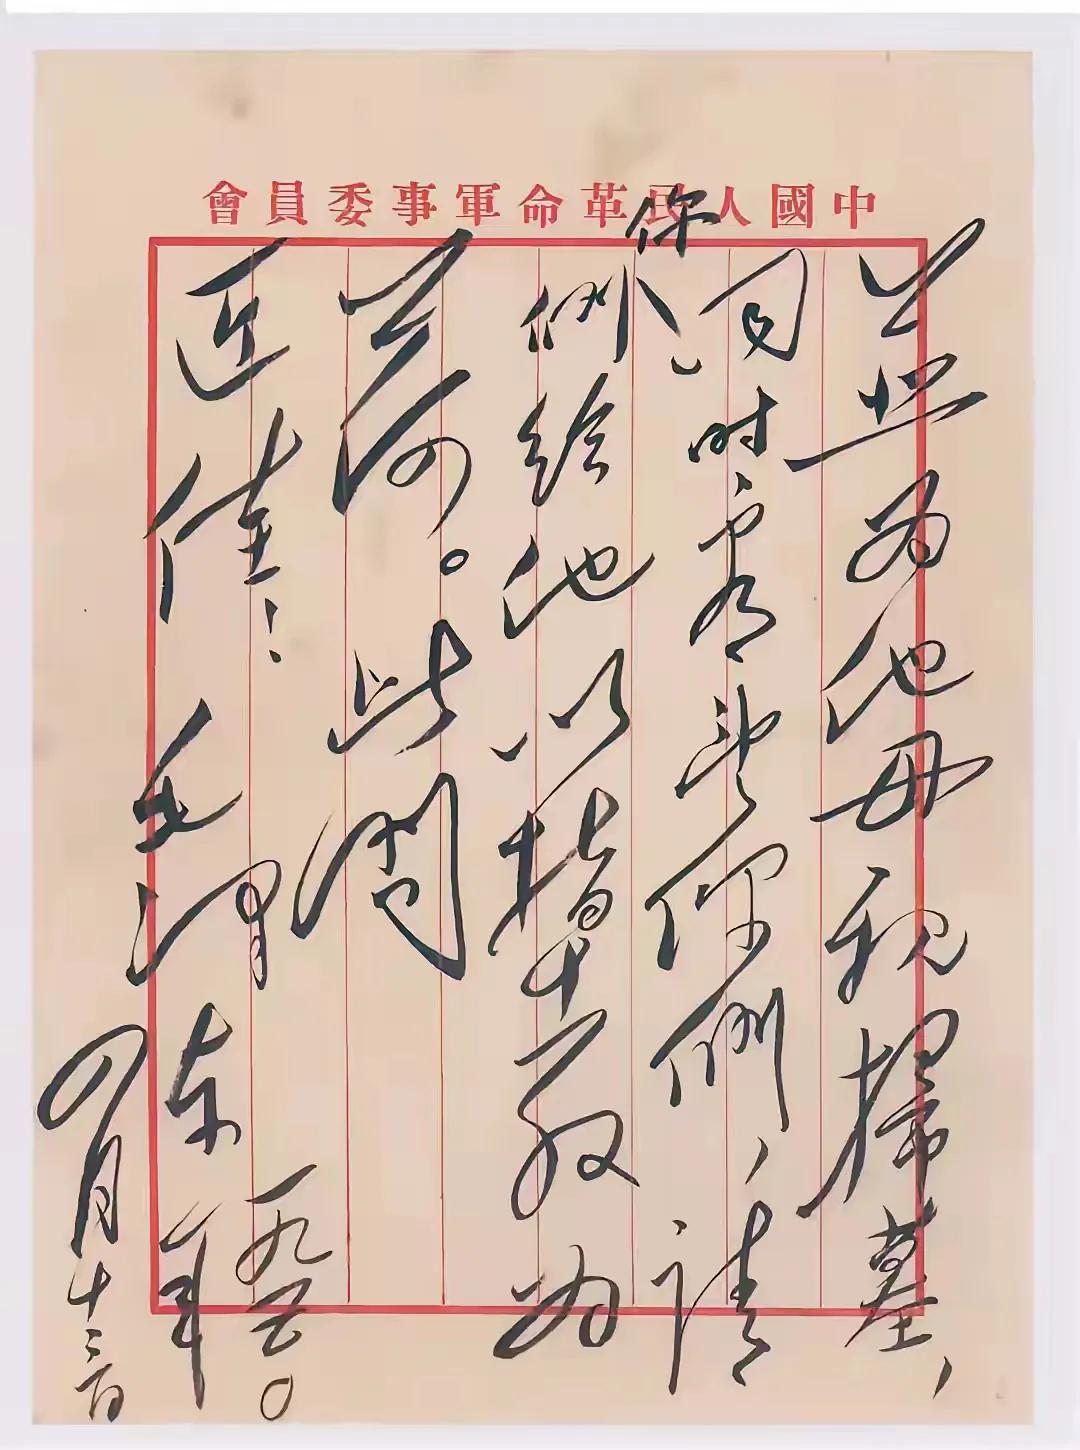 中國人民革命軍事委員會
並
为他母親掃墓,
同時看望你們,請
你們給他以指教为
荷。此問
近佳!
毛澤東
一九五〇年
四月十三日